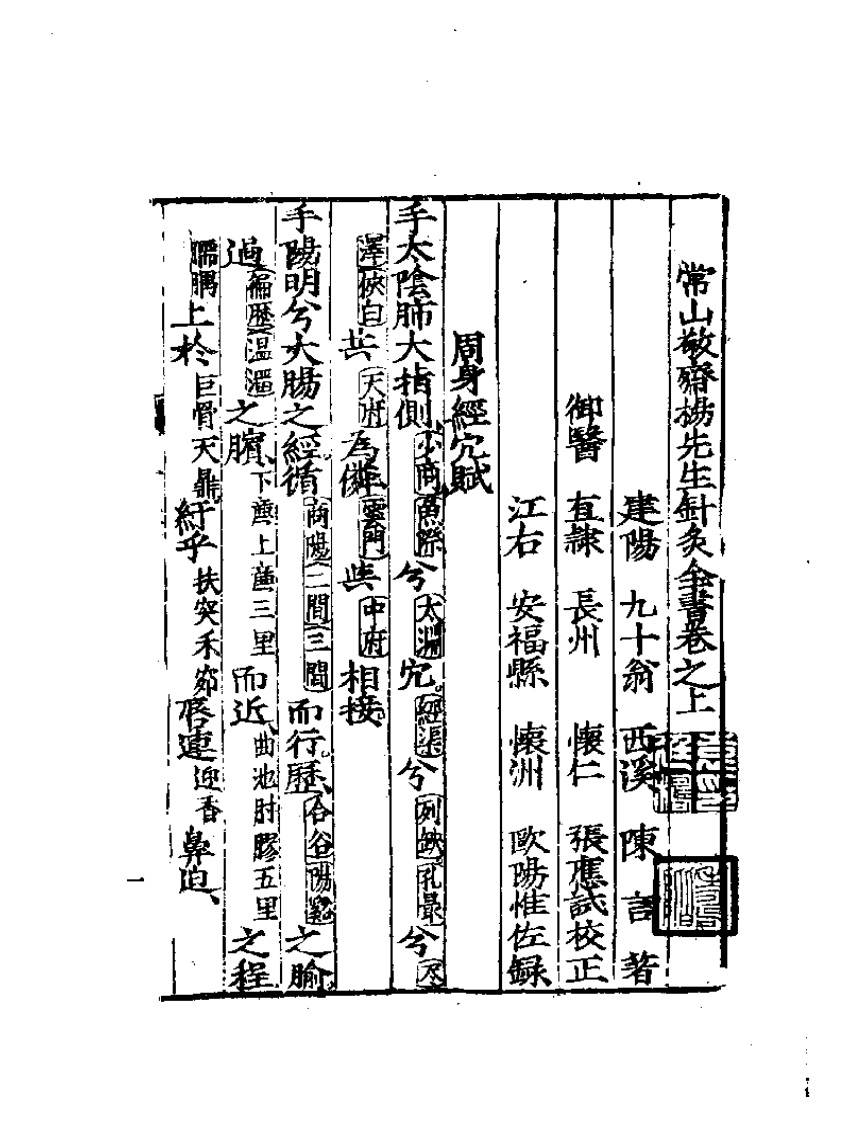 常山敬齋楊先生針灸全書卷之上
建陽 九十翁 西溪 陳言 著
御醫 直隸 長州 懷仁 張應試校正
江右 安福縣 懷洲 歐陽惟佐録
周身經穴賦
手太陰肺大指側少商魚際兮太淵穴經渠兮列缺孔最兮尺
澤俠白共天府為憐雲門與中府相接
手陽明兮大腸之經循商陽二間三間而行歷合谷陽谿之腧
過偏歷溫溜之臏下廉上廉三里而近曲池肘膠五里之程
臑髃上於巨骨天鼎紆乎扶突禾節唇連迎香鼻迫
一